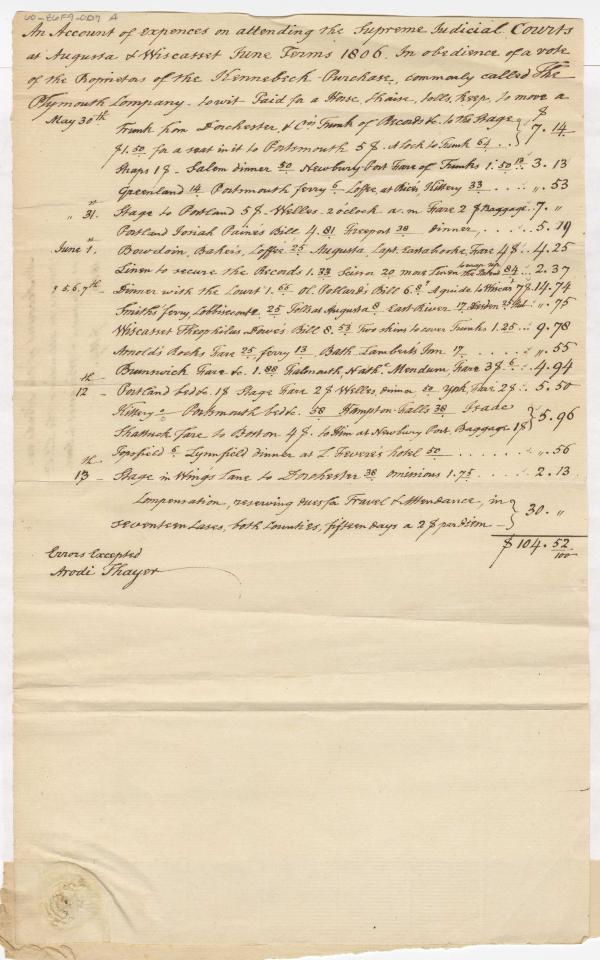 An Account of expences on attending the Supreme Judicial Courts
at Augusta & Wiscasset June Terms 1806. In obedience of a vote
of the Proprietors of the Kennebeck Purchase, commonly called The
Plymouth Company. to wit Paid for a Horse, Chaise, tolls, keep, to move a
May 30th Trunk from Dorchester, & Co's Trunk of Records &c. to the Stage } $
$1.50 for a seat in it to Portsmouth 5$. A lock to Trunk 64 .. } 7.14
Straps 1$ - Salem dinner 50 Newbury Port Fare of Trunks 1.50 .. 3.13
Greenland 14 Portsmouth ferry 6 Coffee, at Rice's Kittery 33 .... ". 53
" 31st Stage to Portland 5$. Welles. 2 o'clock a.m Fare 2$ Baggage. 7. "
Portland Josiah Paine's Bill 4.81 Freeport 38 dinner, .. 5.19
June 1st Bowdoin, Baker's, Coffee 25 Augusta, Capt. Eastabooke, Fare 4$.. 4.25
Linen to secure the Records 1.33 Scison 20 more Linen to wrap up the Plans 84 .. 2.37
" 5.6.7th - Dinner with the Court 1.66 Ol. Pollard's Bill A guide to 7$. 14.74
Smiths ferry, 25 Tolls at Augusta 8 East River 17 ". 75
Wiscasset Theophilus Dowe's Bill 8.53 Two skins to cover Trunks 1.25 .. 9.78
Arnold's Rocks Fare 25 ferry 13 Bath Lambert's Inn 17 ...... ". 55
Brunswick Fare &c. 1.88 Falmouth, Nath'l Mendum, Fare 3$ 6 .. 4.94
12th - Portland bed &c. 1$ Stage Fare 2$ Welles, dinner 50 York, Fare 2$ .. 5.50
Kittery & Portsmouth bed &c. 58 Hampton Falls 38 Trade }
Shattuck Fare to Boston 4$. to Him at Newbury Port. Baggage 1$ } 5.96
Topsfield 6 Lynnfield dinner at L Fevere's hotel 50 ...... ". 56
13th - Stage in Wing's Lane to Dorchester 38 omissions 1.75 ...... 2.13
Compensation, reserving dues for Travel & Attendance, in }
seventeen Cases, both Counties, fifteen days a 2$ per diem - } 30. "
$104.52/100
Errors Excepted
Arodi Thayer